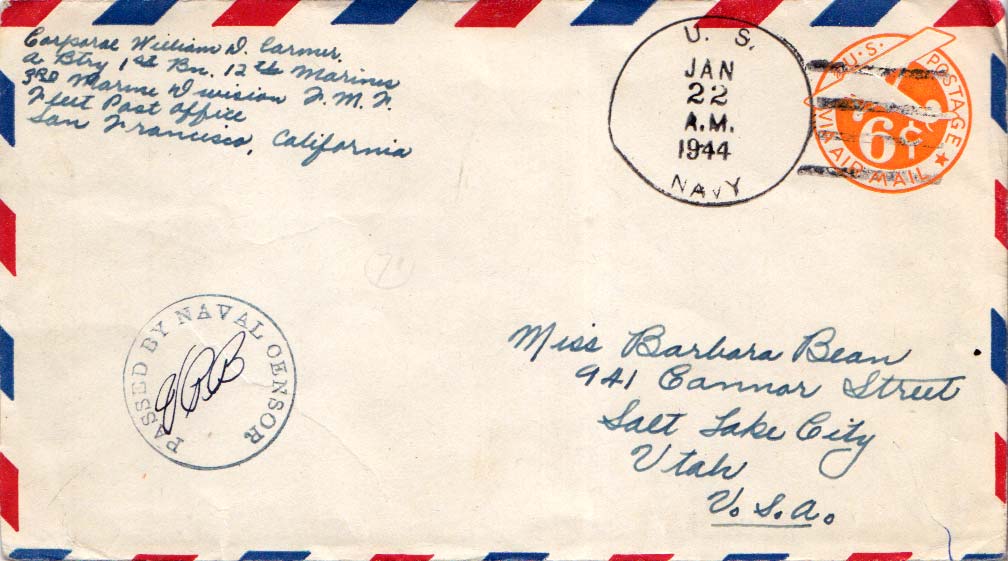 Corporal William D. Carmer.
A Btry 1st Bn. 12th Marines
3RD Marine Division F.M.F.
Fleet Post Office
San Francisco, California
U. S.
JAN
22
A.M.
1944
NAVY
U.S. POSTAGE
6¢
VIA AIR MAIL
PASSED BY NAVAL CENSOR
Miss Barbara Bean
941 Connor Street
Salt Lake City
Utah
U.S.A.